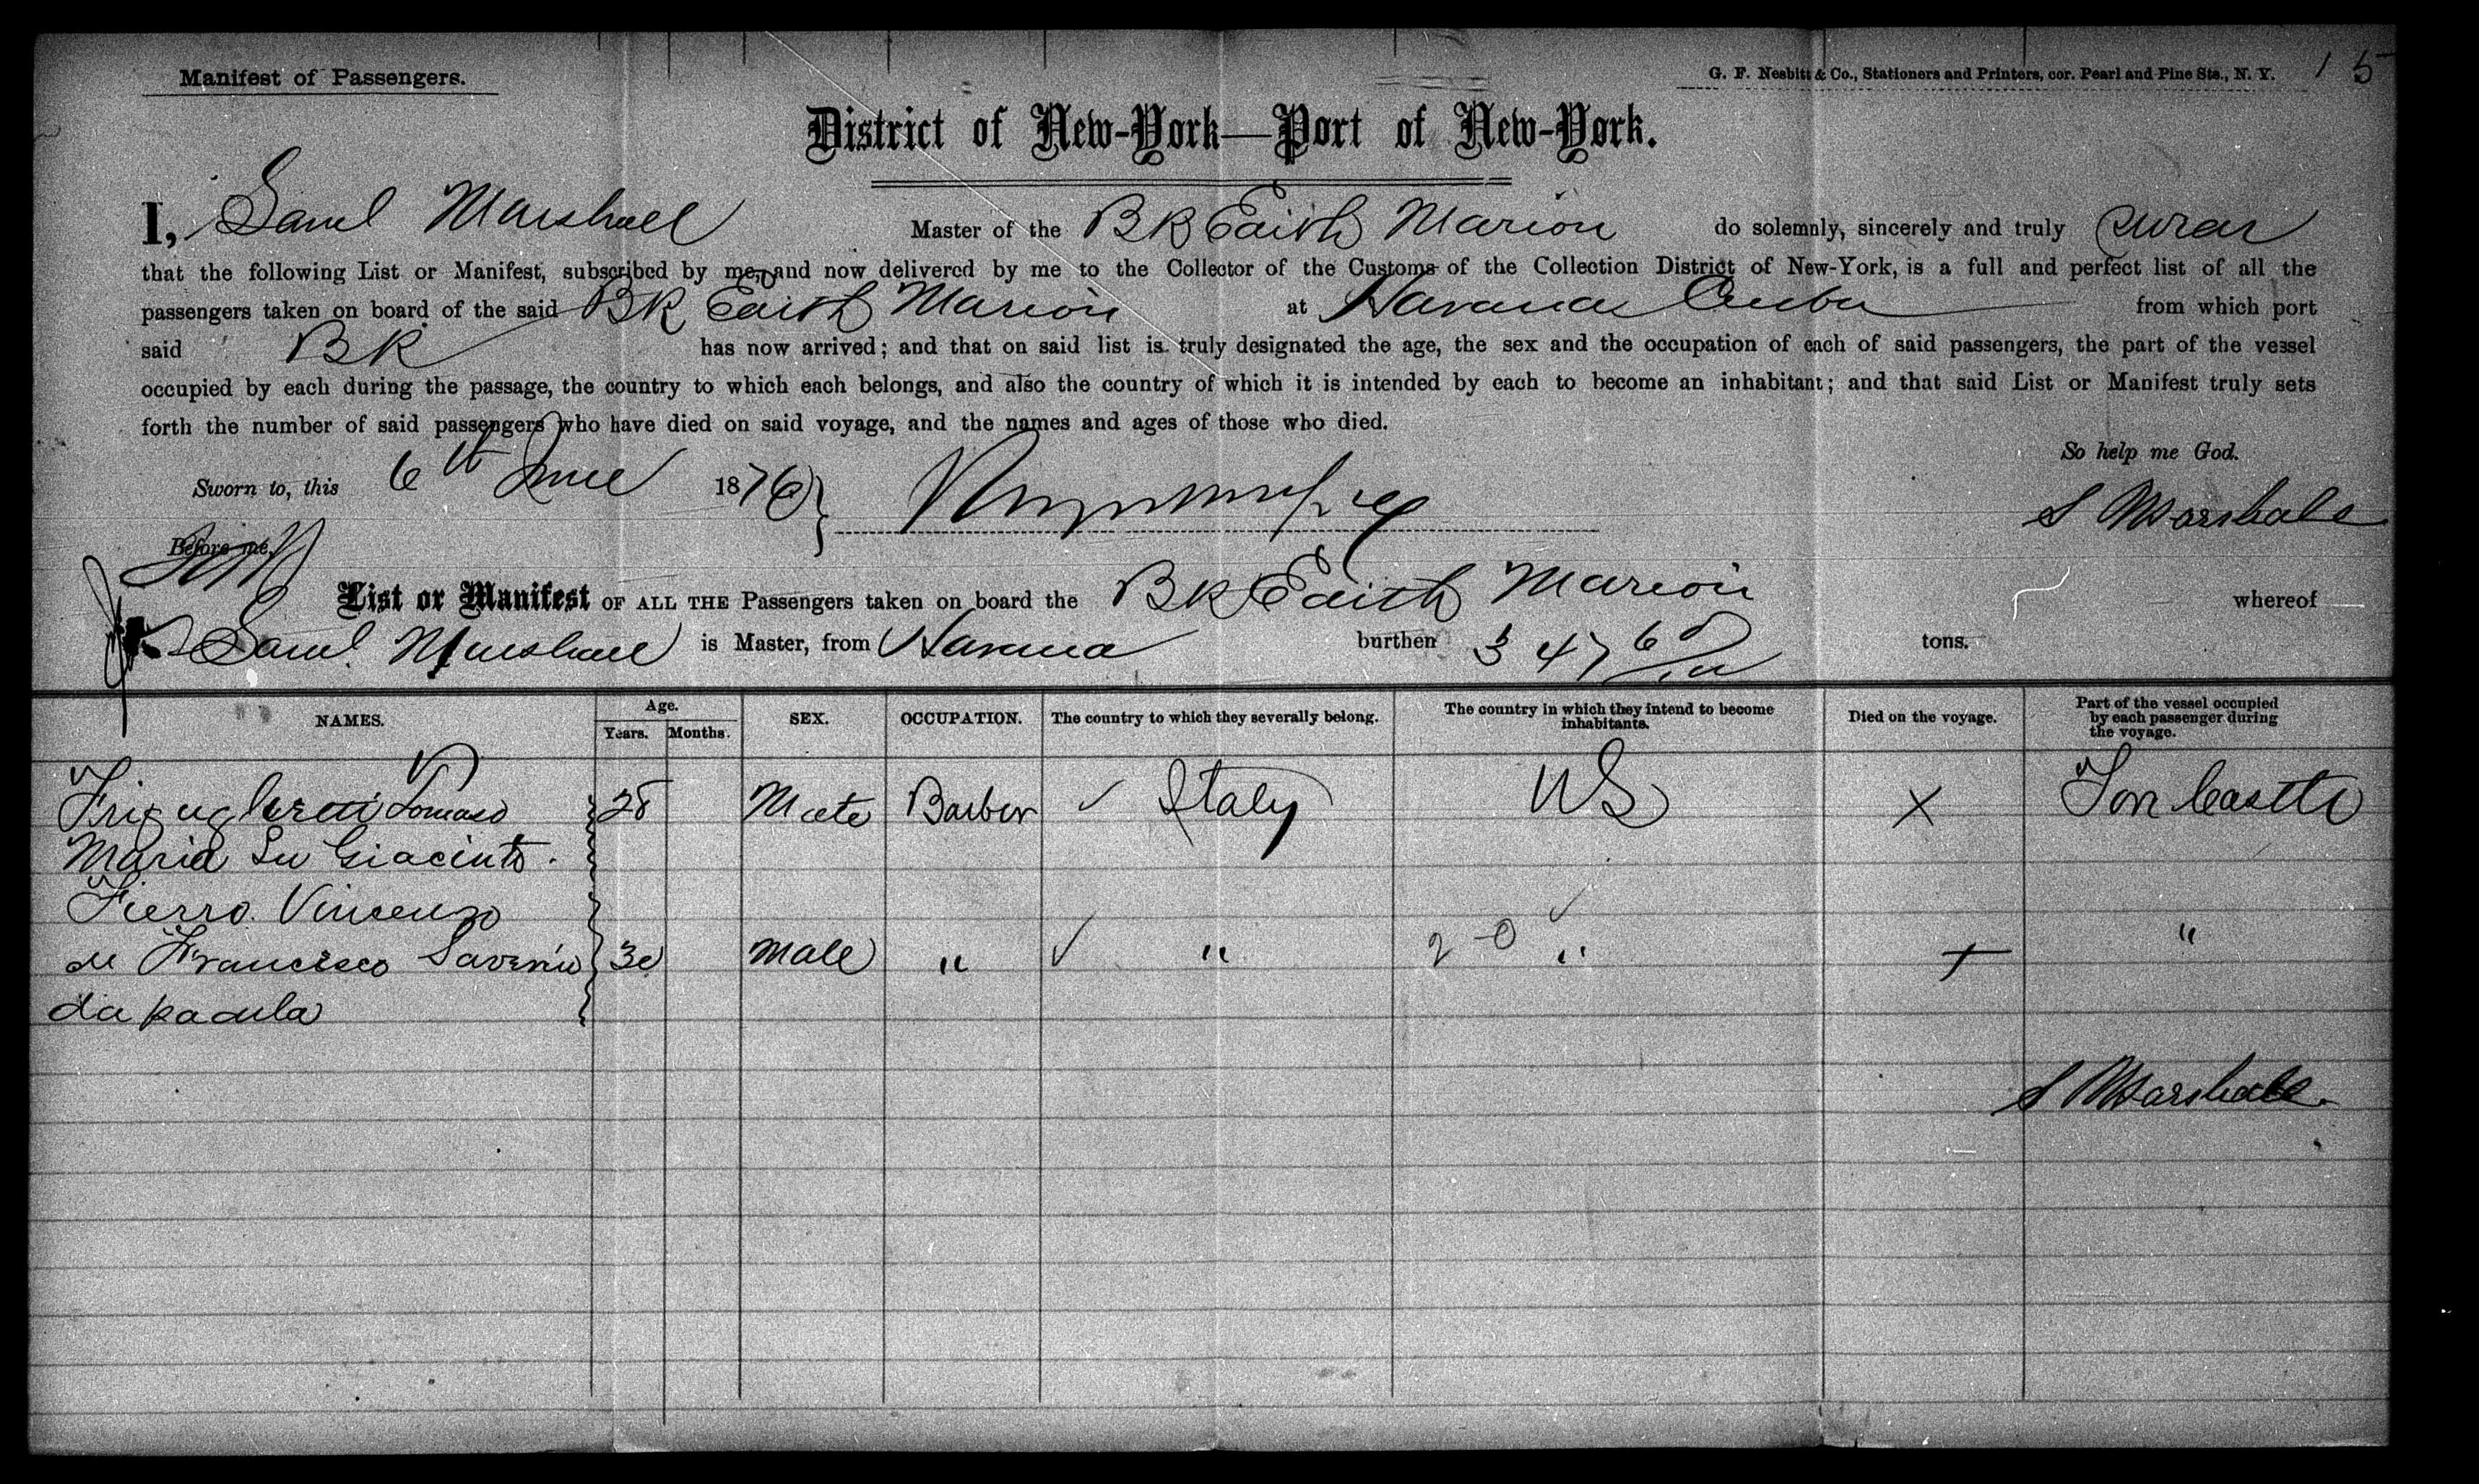 Manifest of Passengers.
G. F. Nesbitt & Co., Stationers and Printers, cor. Pearl and Pine Sts., N. Y. 15
District of New-York—Port of New-York.
I, Saml Marshall Master of the Bk Edith Marion do solemnly, sincerely and truly swear
that the following List or Manifest, subscribed by me, and now delivered by me to the Collector of the Customs of the Collection District of New-York, is a full and perfect list of all the
passengers taken on board of the said Bk Edith Marion at Havana Cuba from which port
said BK has now arrived; and that on said list is truly designated the age, the sex and the occupation of each of said passengers, the part of the vessel
occupied by each during the passage, the country to which each belongs, and also the country of which it is intended by each to become an inhabitant; and that said List or Manifest truly sets
forth the number of said passengers who have died on said voyage, and the names and ages of those who died.
So help me God.
Sworn to, this 6th June 1876
S Marshall
Before me,
List or Manifest OF ALL THE Passengers taken on board the Bk Edith Marion whereof
Saml. Marshall is Master, from Havana burthen 347 tons.
NAMES. Age. Years. Months. SEX. OCCUPATION. The country to which they severally belong. The country in which they intend to become inhabitants. Died on the voyage. Part of the vessel occupied by each passenger during the voyage.
Tomaso 28 Male Barber ✓ Italy US X
Maria Su Giacinto.
Fierro Vincenzo
de Francisco Saverio 30 Male " ✓ " 20 " "
da padula
S Marshall